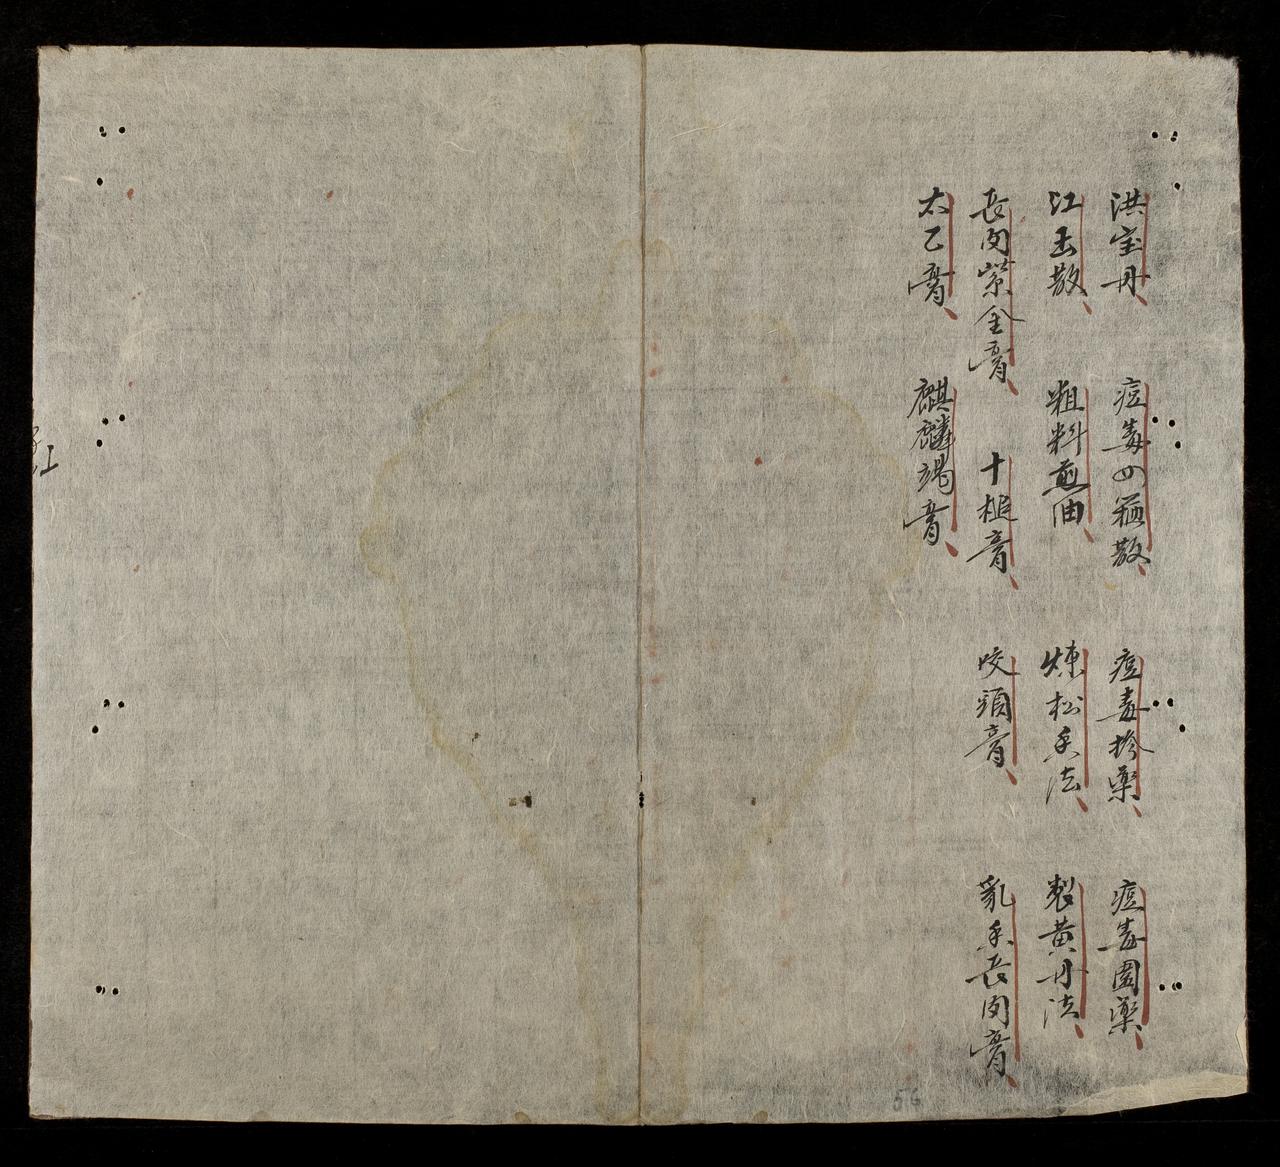 洪宝丹 痘毒四籍散 痘毒掺藥 痘毒圍藥
江玉散 粗料煎油 煉松香法 製黃丹法
長肉紫金膏 十槌膏 咬頭膏 乳香長肉膏
太乙膏 麒麟竭膏
56